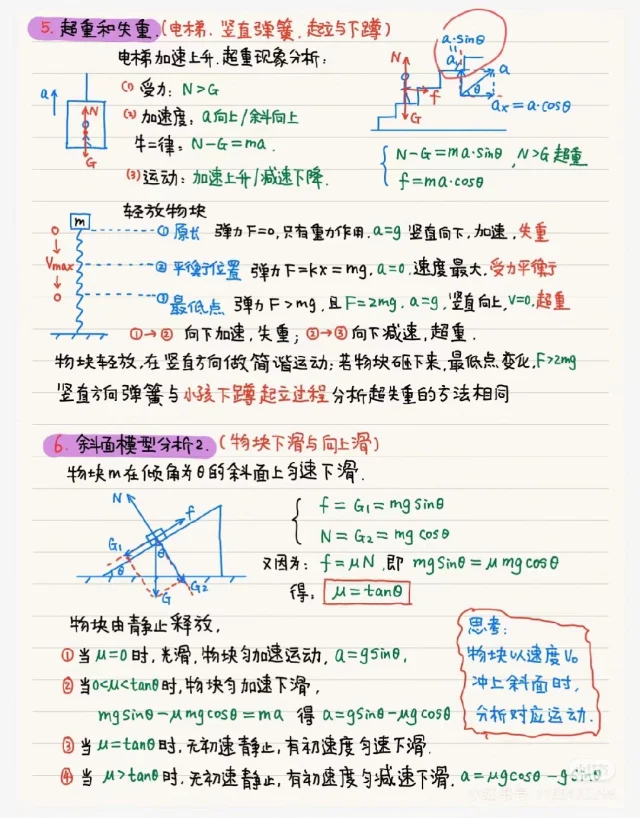 5. 超重和失重.(电梯、竖直弹簧、起立与下蹲)
电梯加速上升.超重现象分析:
(1) 受力: N>G
(2) 加速度: a向上/斜向上
牛二律: N-G=ma.
(3) 运动: 加速上升/减速下降.
a
N
G
N
f
G
a·sinθ
"
ay
a
θ
ax=a·cosθ
N-G=ma·sinθ, N>G 超重
f=ma·cosθ
轻放物块
m
0
Vmax
0
① 原长 弹力F=0,只有重力作用,a=g 竖直向下,加速,失重
② 平衡位置 弹力F=kx=mg. a=0.速度最大,受力平衡
③ 最低点 弹力F>mg, 且F=2mg. a=g, 竖直向上, v=0.超重
①→② 向下加速,失重; ②→③向下减速,超重.
物块轻放,在竖直方向做简谐运动;若物块砸下来,最低点变化,F>2mg
竖直方向弹簧与小孩下蹲起立过程分析超失重的方法相同
6. 斜面模型分析2.(物块下滑与向上滑)
物块m在倾角为θ的斜面上匀速下滑.
N
f
G1
θ
θ
G
G2
f=G1=mgsinθ
N=G2=mgcosθ
又因为: f=μN.即 mgsinθ=μmgcosθ
得: μ=tanθ
物块由静止释放,
①当μ=0时,光滑,物块匀加速运动, a=gsinθ,
②当0<μ<tanθ时,物块匀加速下滑,
mgsinθ-μmgcosθ=ma 得 a=gsinθ-μgcosθ
③当μ=tanθ时,无初速静止,有初速度匀速下滑.
④当 μ>tanθ时,无初速静止,有初速度匀减速下滑. a=μgcosθ-gsinθ
思考:
物块以速度V0
冲上斜面时,
分析对应运动.